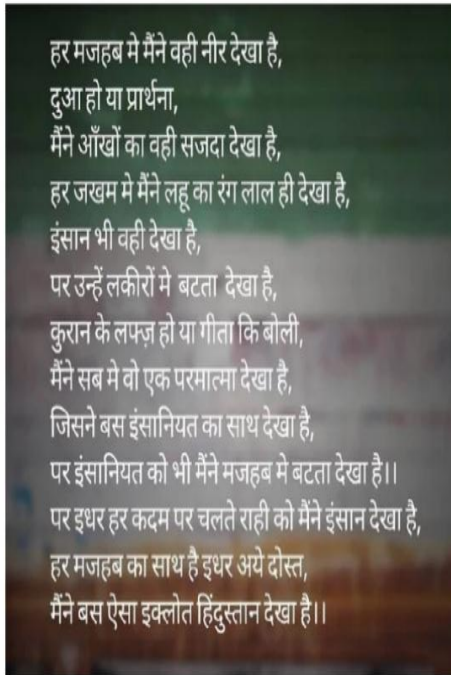 हर मजहब मे मैंने वही नीर देखा है,
दुआ हो या प्रार्थना,
मैंने आँखों का वही सजदा देखा है,
हर जखम मे मैंने लहू का रंग लाल ही देखा है,
इंसान भी वही देखा है,
पर उन्हें लकीरों मे बटता देखा है,
कुरान के लफ्ज़ हो या गीता कि बोली,
मैंने सब मे वो एक परमात्मा देखा है,
जिसने बस इंसानियत का साथ देखा है,
पर इंसानियत को भी मैंने मजहब मे बटता देखा है।।
पर इधर हर कदम पर चलते राही को मैंने इंसान देखा है,
हर मजहब का साथ है इधर अये दोस्त,
मैंने बस ऐसा इक्लोत हिंदुस्तान देखा है।।